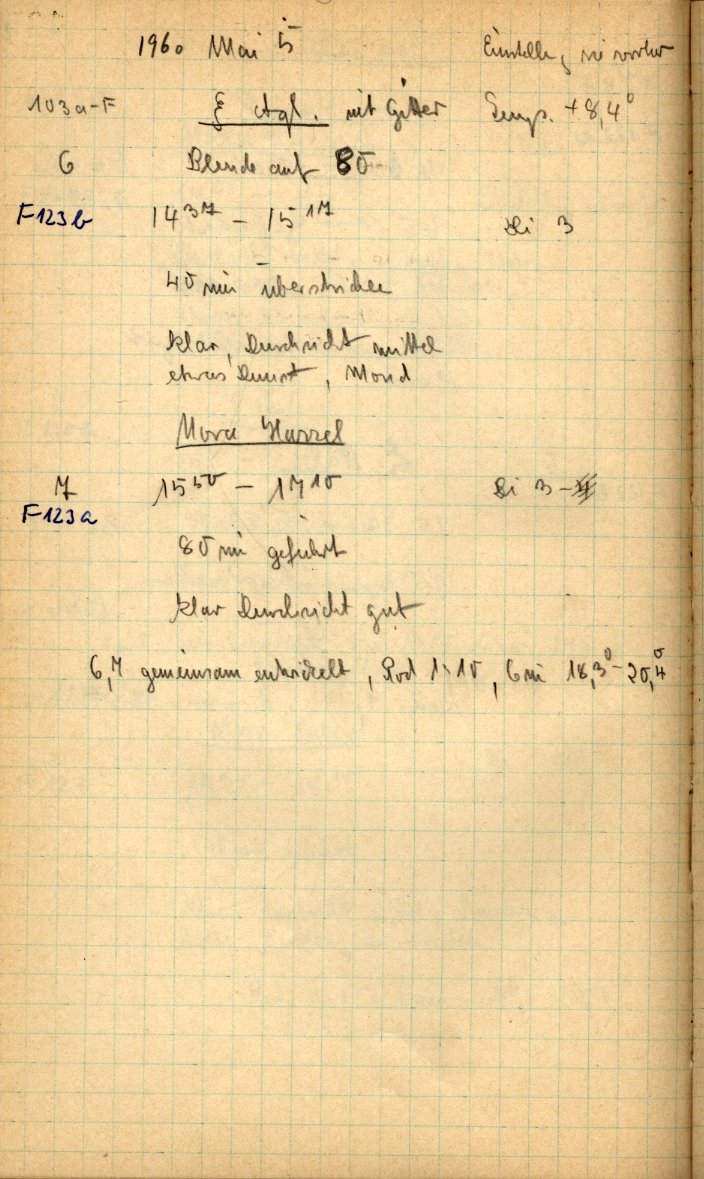 1960 Mai 5 Einstellg wie vorher
103a-F ξ Aql. mit Gitter Temp. +8,4°
6 Blende auf 80
F123b 14³⁷ – 15¹⁷ Li 3
40 min überstrichen
klar, Durchsicht mittel
etwas Dunst, Mond
Nova Hassel
7 15⁵⁰ – 17¹⁰ Li 3
F123a
80 min geführt
klar Durchsicht gut
6,7 gemeinsam entwickelt, Rod 1:10, 6 min 18,3° – 20,4°